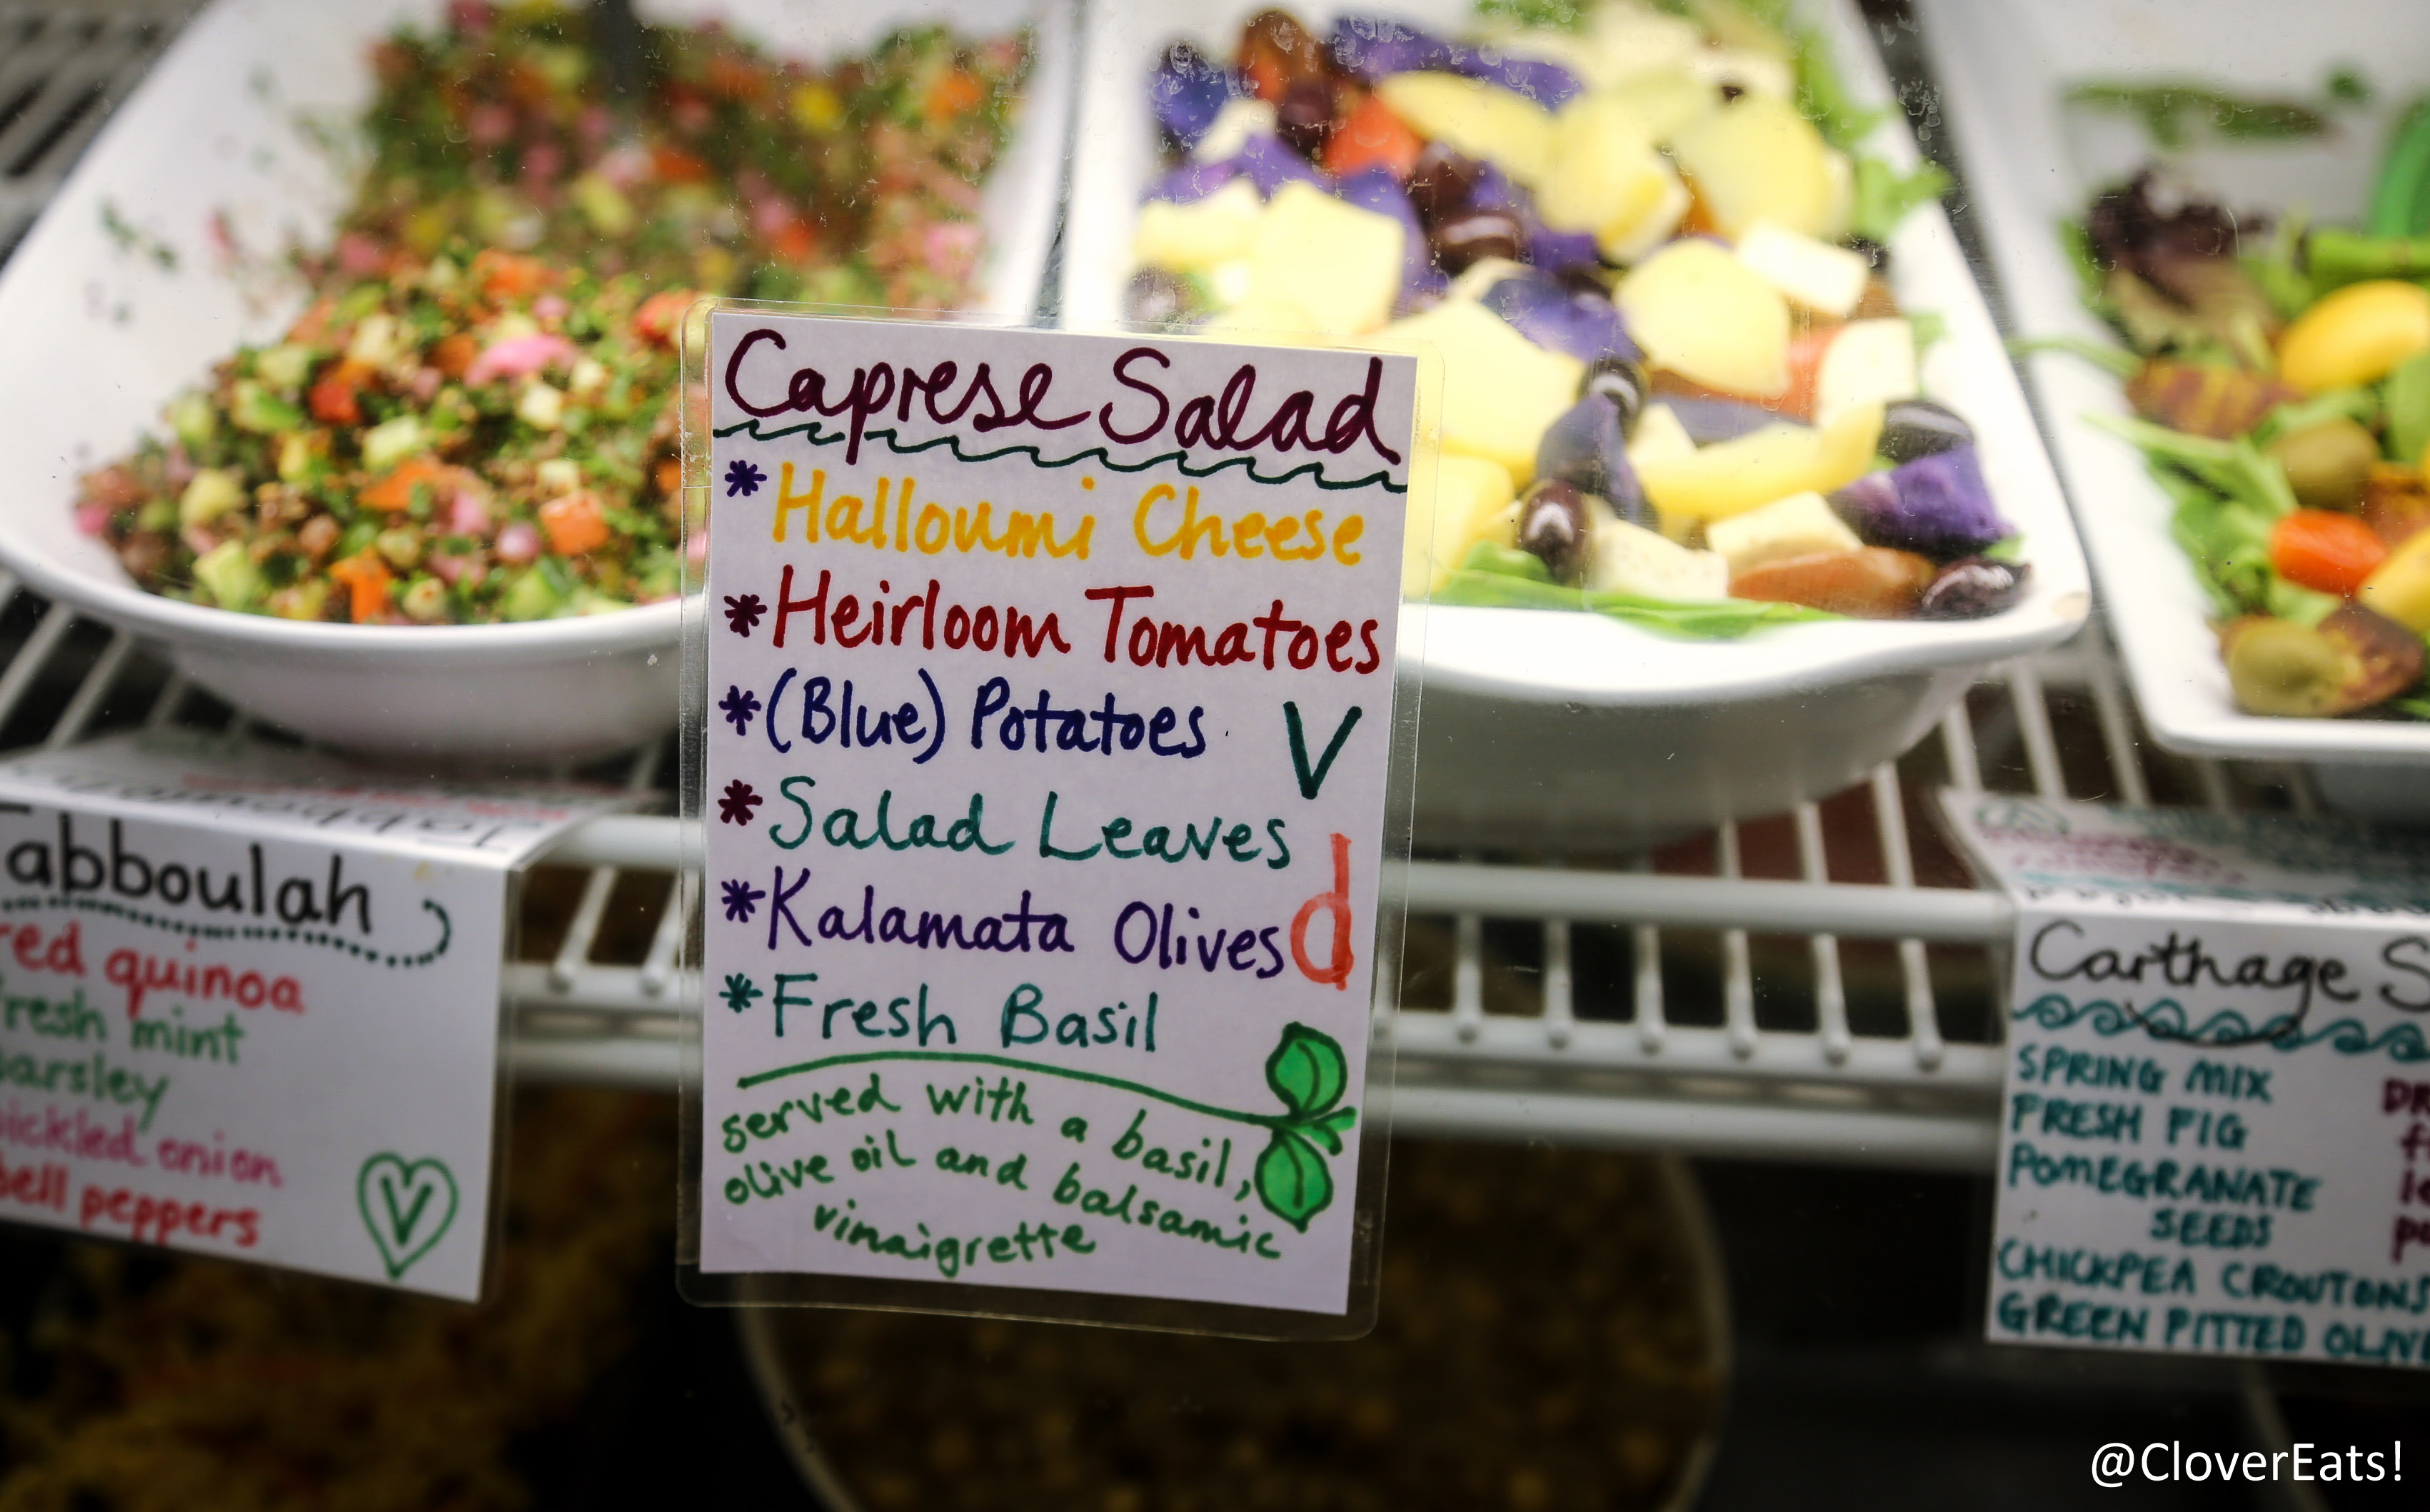 Caprese Salad
* Halloumi Cheese
* Heirloom Tomatoes
* (Blue) Potatoes
V
* Salad Leaves
* Kalamata Olives
d
* Fresh Basil
served with a basil,
olive oil and balsamic
vinaigrette
Tabboulah
red quinoa
fresh mint
parsley
pickled onion
bell peppers
V
Carthage
SPRING MIX
FRESH FIG
POMEGRANATE
SEEDS
CHICKPEA CROUTONS
GREEN PITTED
@CloverEats!